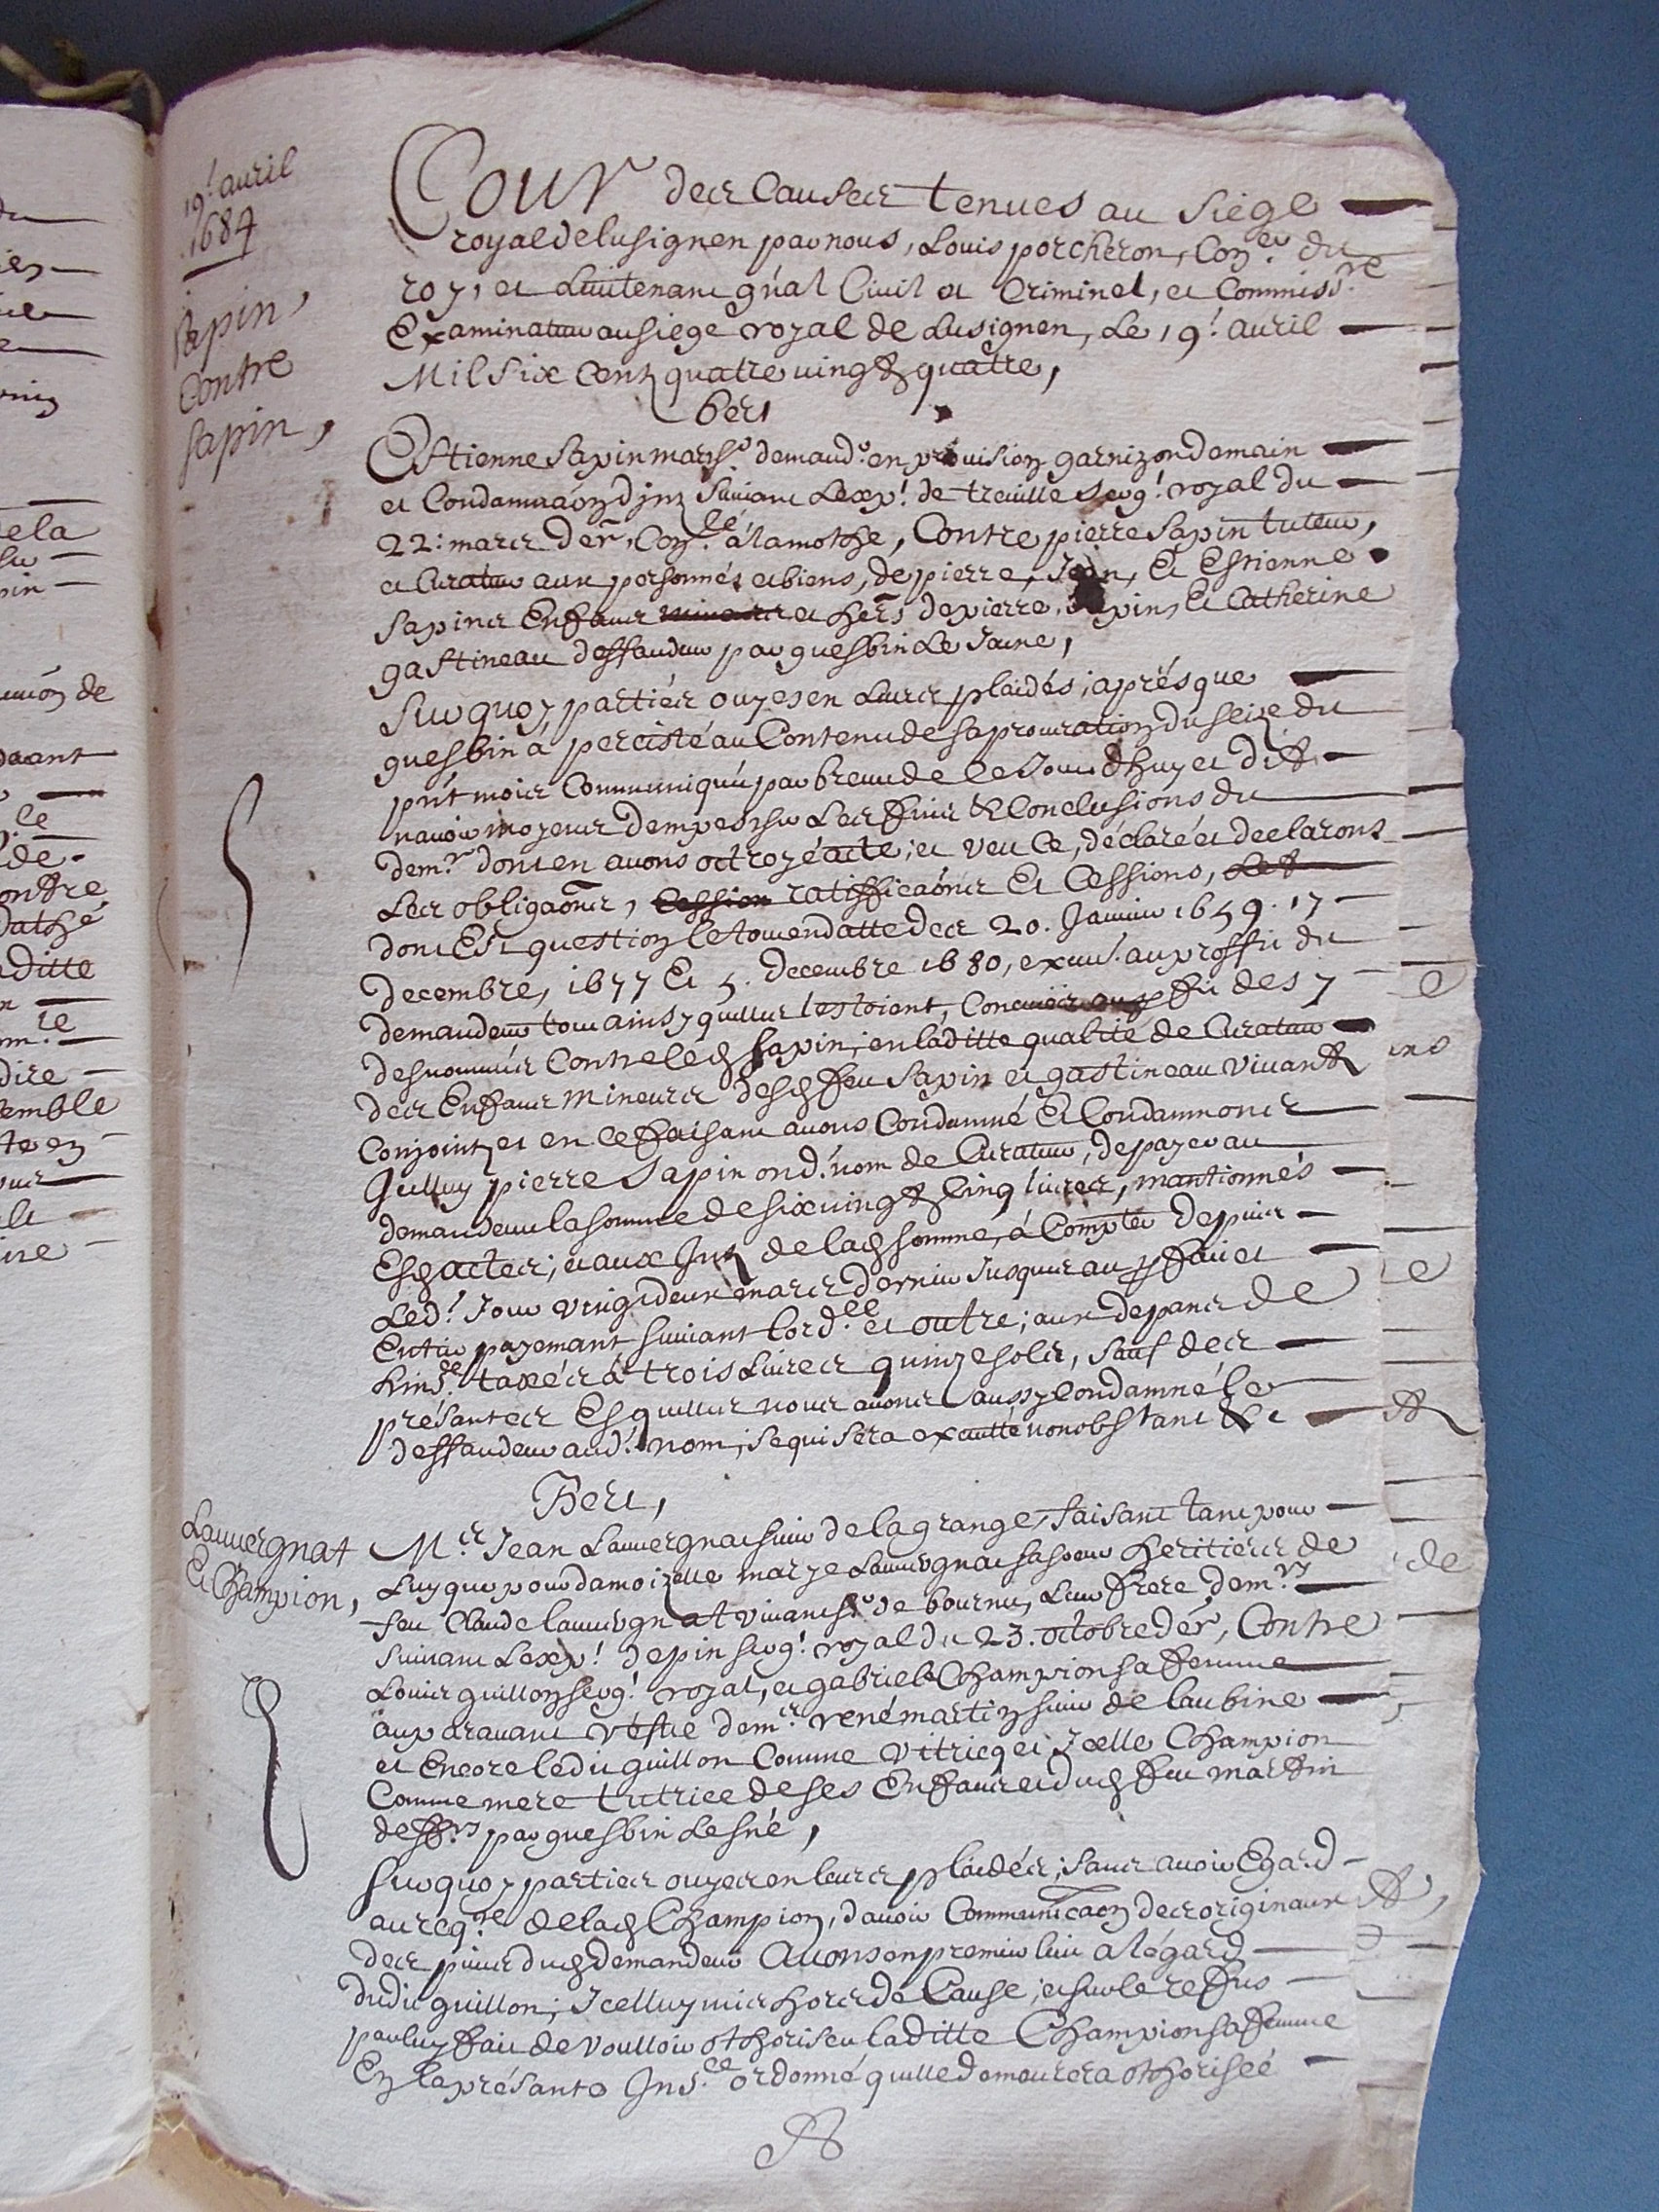 19.e auril
1684
Sapin,
Contre
Sapin,
Cour des Causes tenues au Siége
royal de lusignen par nous, Louis porcheron, Con.er du
roy, et Lieutenant gn̄al Ciuil et Criminel, et Commiss.re
Examinateur au siege royal de Lusignen, Le 19.e auril
Mil six Centz quatre uingtz quatre,
Estienne Sapin march.t demand.r en prouision garnizon de main
et Condamnaōn d'intz suiuant L'exp.t de treuille serg.t royal du
22.e mars der̄, Con.lé a lamothe, Contre pierre Sapin tuteur,
et Curateur aux personnes et biens, de pierre, Jean, Et Estienne
Sapins Enffans mineurs et her̄s de pierre Sapin, Et Catherine
gastineau deffandeur par guesbin Le Jeune,
Sur quoy parties ouyes en Leurs plaidés; aprés que
guesbin a percisté au Contenu de sa procuration du seize du
pn̄t mois Communiquée par breuue de ce Jourd'huy et dit
n'auoir moyens d'empescher Les fins & Conclusions du
dem.r dont en auons octroyé acte; et veu Ce, déclaré et declarons
Les obligaōns, Cession ratifficaōns Et Cessions, Let
dont Est question le tout en datte des 20. Januier 1659. 17
decembre, 1677 Et 5. decembre 1680, exeut. au proffit du
demandeur tout ainsy qu'elles l'estoient, Contre les
desnommés Contre led Sapin, en laditte qualité de Curateur
des Enffans mineurs desd feu Sapin et gastineau viuantz
Conjointz et en ce faisant auons Condamné Et Condamnons
Icelluy pierre Sapin ond.t nom de Curateur, de payer au
demandeur la somme de six uingtz cinq liures, mantionnés
Esd actes; et aux Intz de lad somme, a Compter depuis
Led.t Jour vingt deux mars dernier Jusques au parffait et
Entier payemant, suiuant l'ord.ce et outre; aux depans de
L'ins.ce taxés a trois Liures quinze sols, sauf des
présantes Esquelles nous auons aussy Condamné le
deffandeur aud.t nom; se qui sera exécutté nonobstant &c
Lauuergnat
Et Champion,
Entre,
M.re Jean Lauuergnat sieur de la grange, faisant tant pour
Luy que pour damoizelle marye Lauuergnat sa soeur heritiérs de
feu Claude lauuergnat viuant s.r de bournu, Leur frere, dem.rs
suiuant L'exp.t de pin serg.t royal du 23. octobre der̄, Contre
Louis guillon serg.t royal, et gabrielle Champion sa femme
auparauant vefue de m.re rené martin sieur de laubine
et Encore ledit guillon Comme vitricq et Icelle Champion
Comme mere tutrice de ses Enffans et dud feu martin
deff.rs par guesbin Lesné,
Sur quoy parties ouyes en leurs plaidés; sans auoir Egard
au req.re de lad Champion, d'auoir Communicaōn des originaux
des pieces dud demandeur Auons en premier lieu a l'égard
dudit guillon; Icelluy mis hors de Cause; et sur le reffus
par luy fait de voulloir othoriser laditte Champion sa femme
En la présante Ins.ce ordonné qu'elle demeurera othorisée